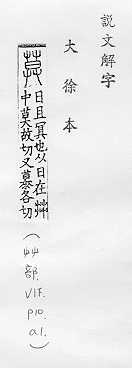 說文解字
大徐本
莫 日且冥也从日在茻
中莫故切又慕各切
(茻部. V1F. p10. a1.)